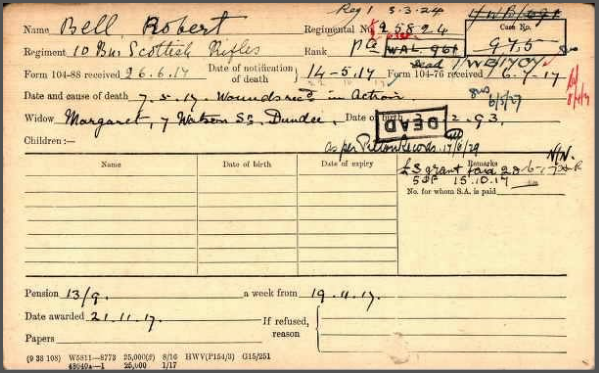 Reg 1 5.3.24 HWB/691
Name Bell, Robert Regimental No. 25824 Case No.
Regiment 10 Bn. Scottish Rifles Rank Pte WAL. 961 975
Dead 1/WB1704
Form 104-88 received 26.6.17 Date of notification of death } 14-5.17 Form 104-76 received 6.7.17
Date and cause of death 7.5.17. Wounds recd in Action.
Widow Margaret, 7 Watson St. Dundee. Date of birth 2.93.
Children:— DEAD
as per
Name Date of birth Date of expiry Remarks N/N.
£5 grant paid 28-6-17
5SP 15.10.17
No. for whom S.A. is paid
Pension 13/9. a week from 19.11.17.
Date awarded 21.11.17. If refused, reason {
Papers
(9 38 108) W5811—8772 25,000(2) 8/16 HWV(P154/3) G15/251
43040a—1 25,000 1/17